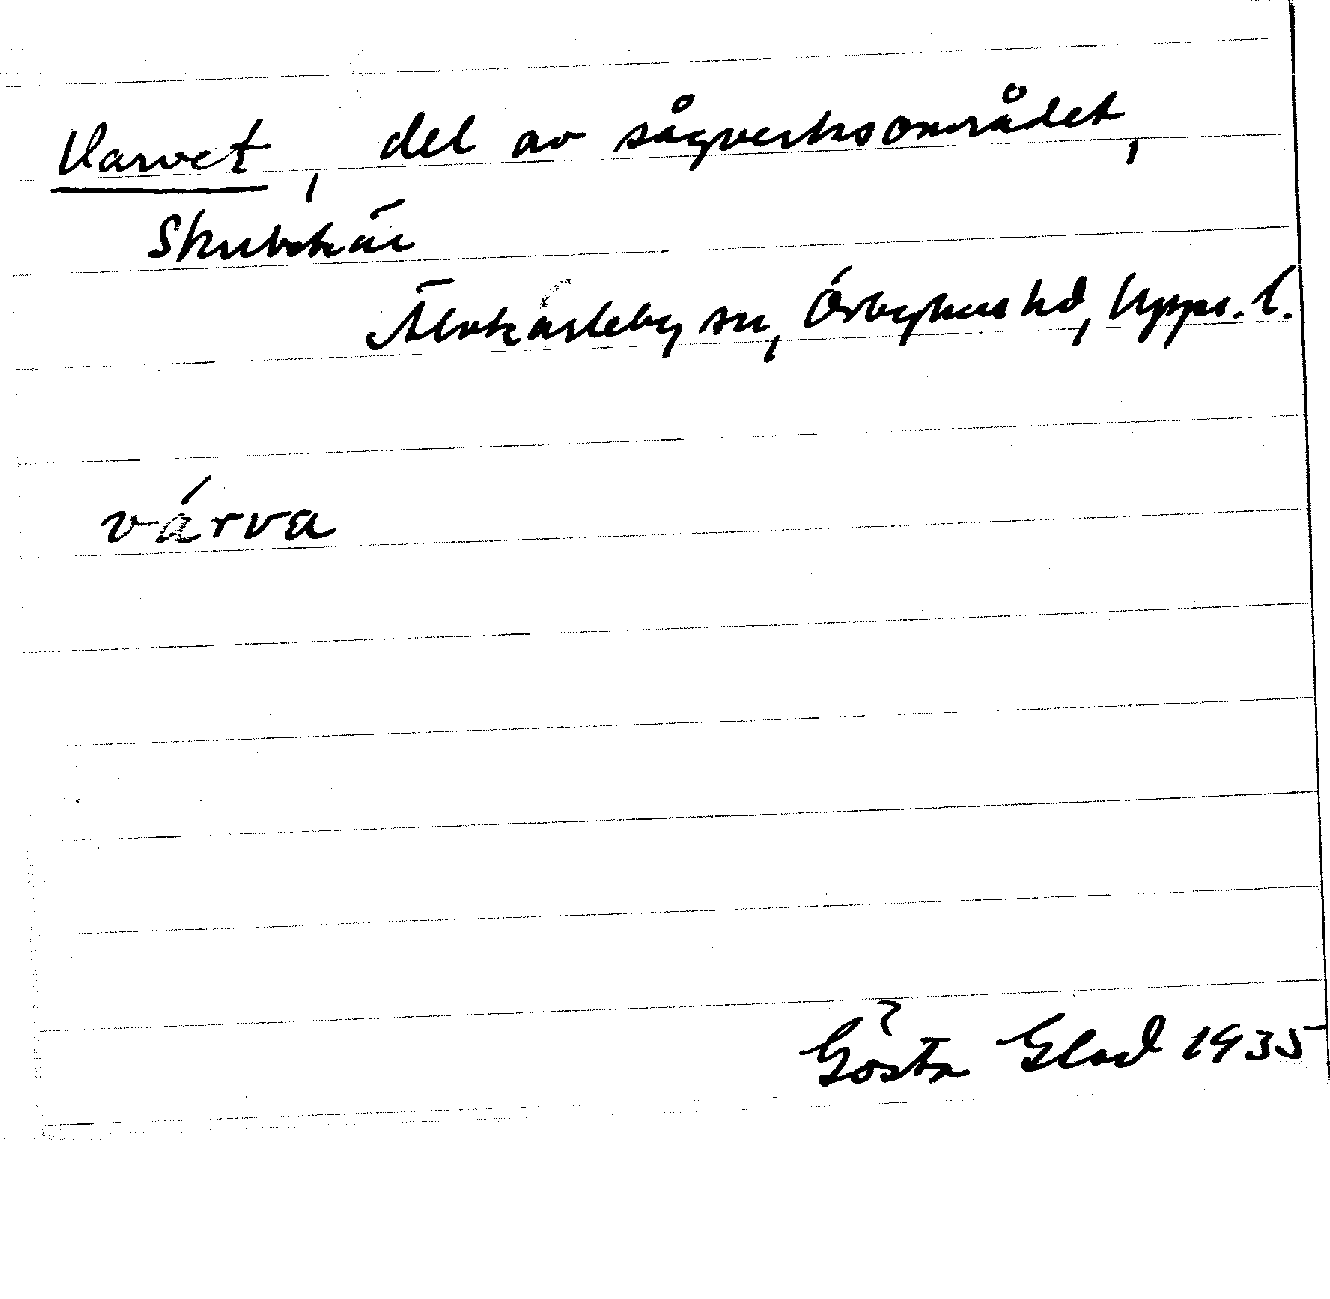 Varvet, del av sågverksområdet,
Skutskär
Älvkarleby sn, Örbyhus hd, Upps. l.
várva
Gösta Glad 1935